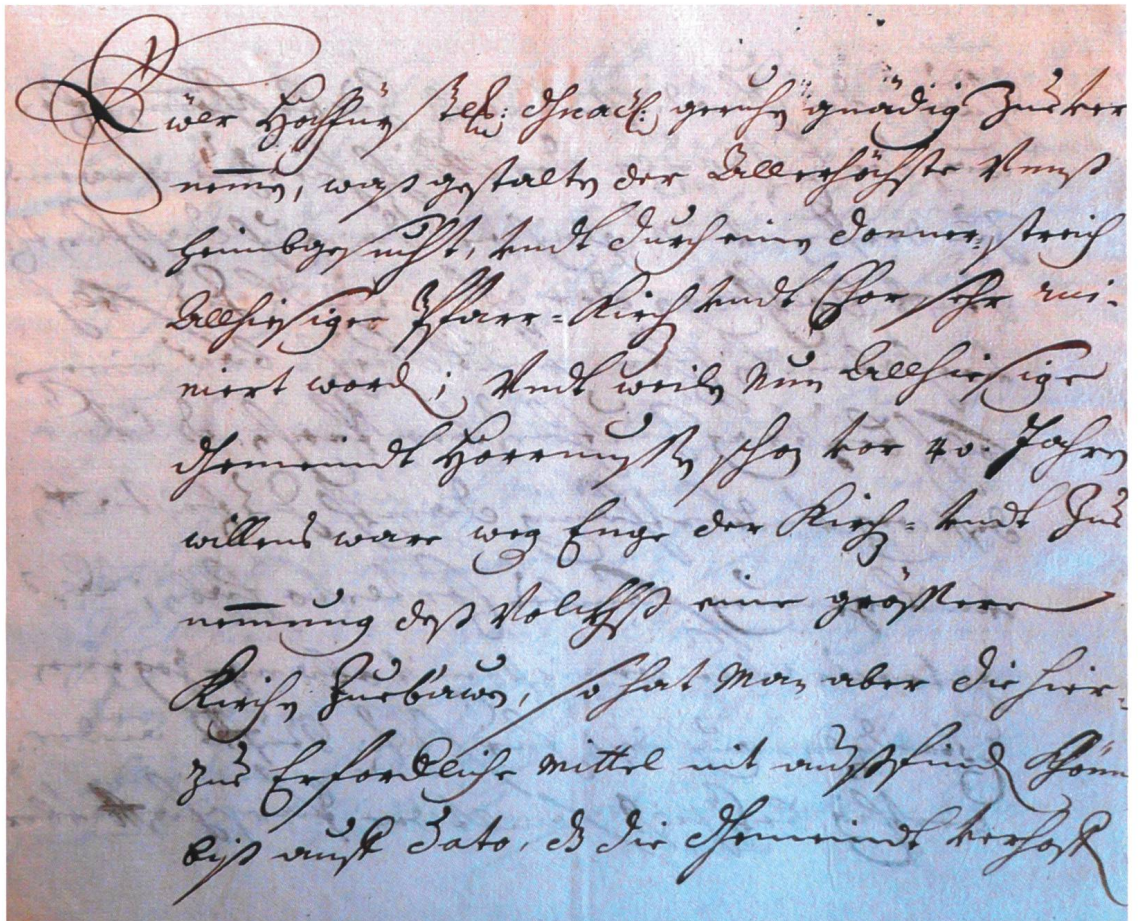 Ewer Hochfürstlich: Gnad: geruhen gnädig Zuever
nemmen, waß gestalten der Allerhöchste Vnnß
heimbgesucht, vndt durch einen donner streich
Allhiesiger Pfarr=Kirch vndt Chor sehr rui-
niert worden; Vndt weilen Nun Allhiesige
Gemeindt schon vor 40. Jahren
willens ware wegen Enge der Kirch= vndt Zue
nemmung deß Volckhß eine größere
Kirchen Zuebawen, so hat Man aber die hier-
zue Erforderliche mittel nit außfinden Khönn
biß auff Dato, dz die Gemeindt verhofft